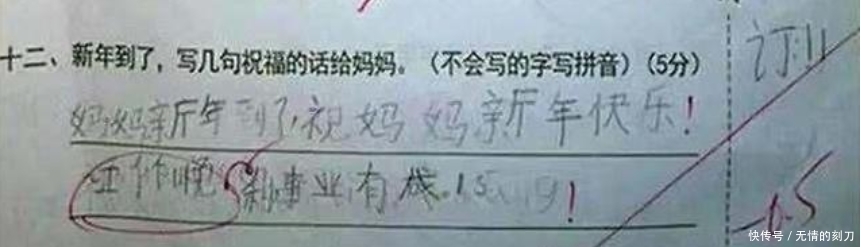 十二、新年到了，写几句祝福的话给妈妈。（不会写的字写拼音）（5分）
妈妈新年到了，祝妈妈新年快乐！
工作
事业有成.
！
订
-0.5
快传号 / 无情的刻刀